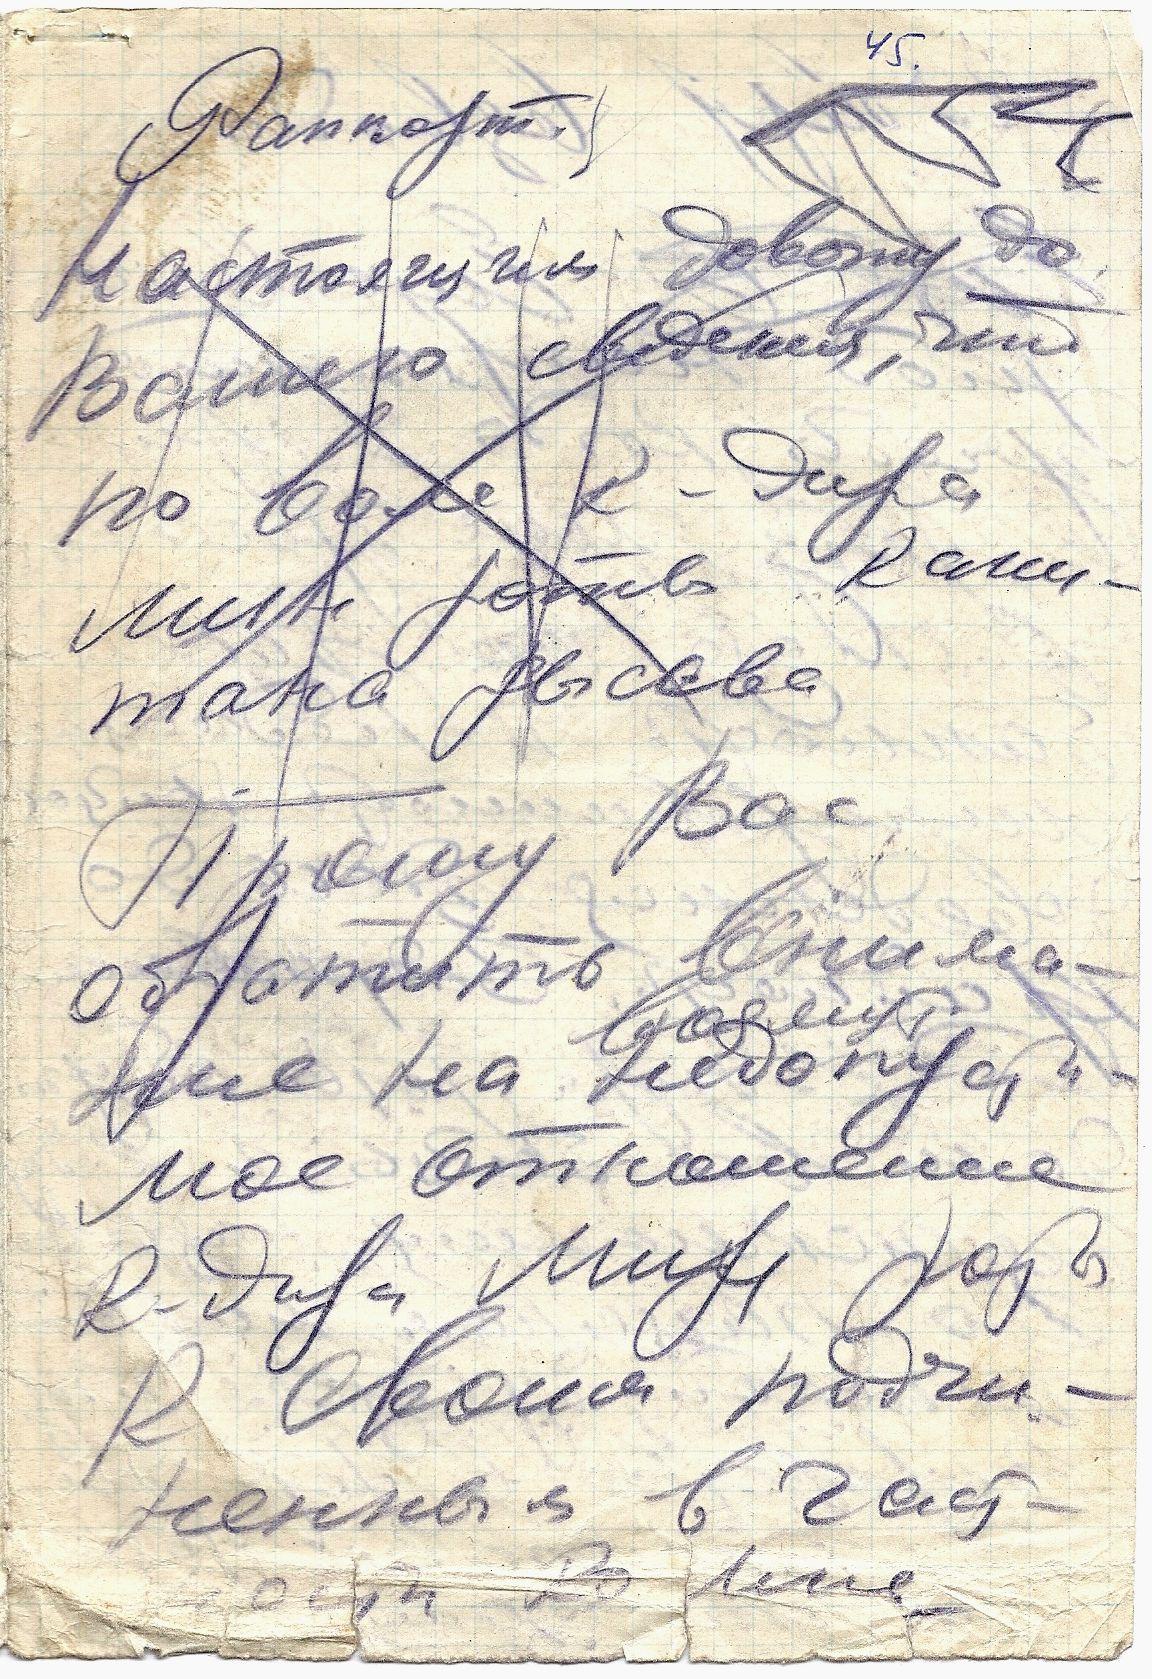 45.
Раппорт.
Настоящим довожу до
Вашего сведения, что
по воле к-дира
мин роты капи-
тана Лысова
Прошу Вас
обратить внима-
ние на недопусти-
мое отношение
к-дира мин роты
к своим подчи-
ненным в част-
ности ко мне